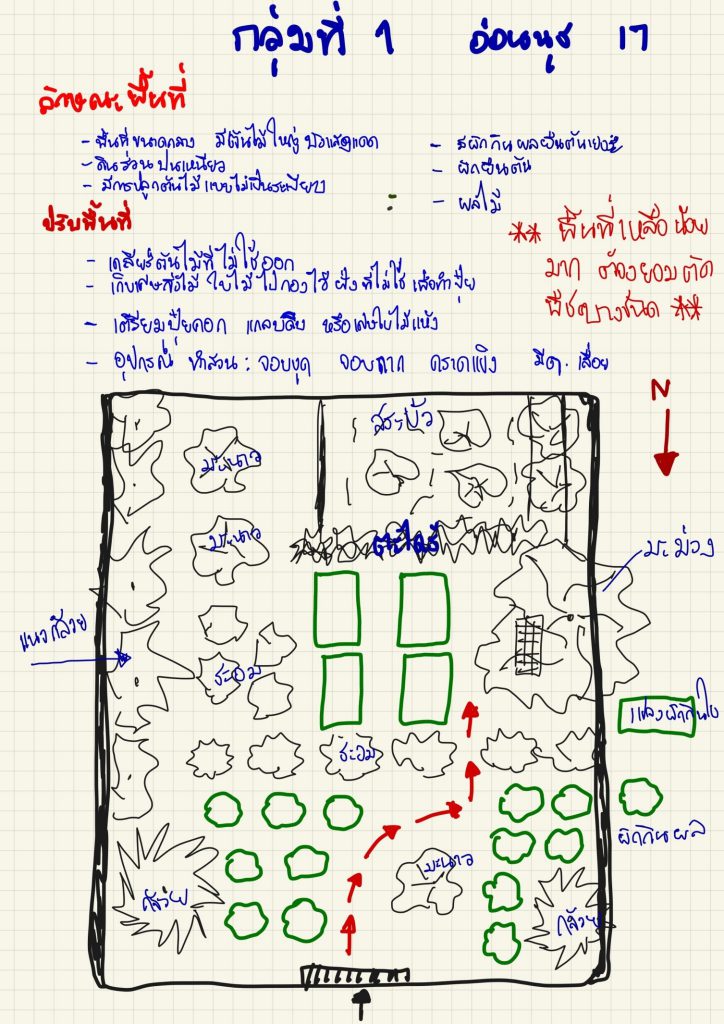 กลุ่มที่ 1 อ่อนนุช 17
ลักษณะพื้นที่
- พื้นที่ขนาดกลาง มีต้นไม้ใหญ่ บัง แดด
- ดินร่วนปนเหนียว
- มีการปลูกต้นไม้แบบไม่เป็นระเบียบ
- ผักกินผลยืนต้น
- ผักยืนต้น
- ผลไม้
ปรับพื้นที่
- เคลียร์ต้นไม้ที่ไม่ใช้ออก
- เก็บเศษกิ่งไม้ ใบไม้ ไปกองไว้ ฝั่งที่ไม่ใช้ เพื่อทำปุ๋ย
- เตรียมปุ๋ยคอก แกลบดิบ หรือเศษใบไม้แห้ง
- อุปกรณ์ ทำสวน : จอบขุด จอบถาก คราดแข็ง มีด เลื่อย
** พื้นที่เหลือน้อย
มาก ต้องยอมตัด
พืชบางชนิด **
N
สระบัว
มะนาว
มะนาว
มะม่วง
แนวกล้วย
ชะอม
แปลงผักกินใบ
ชะอม
ผักกินผล
มะนาว
กล้วย
กล้วย